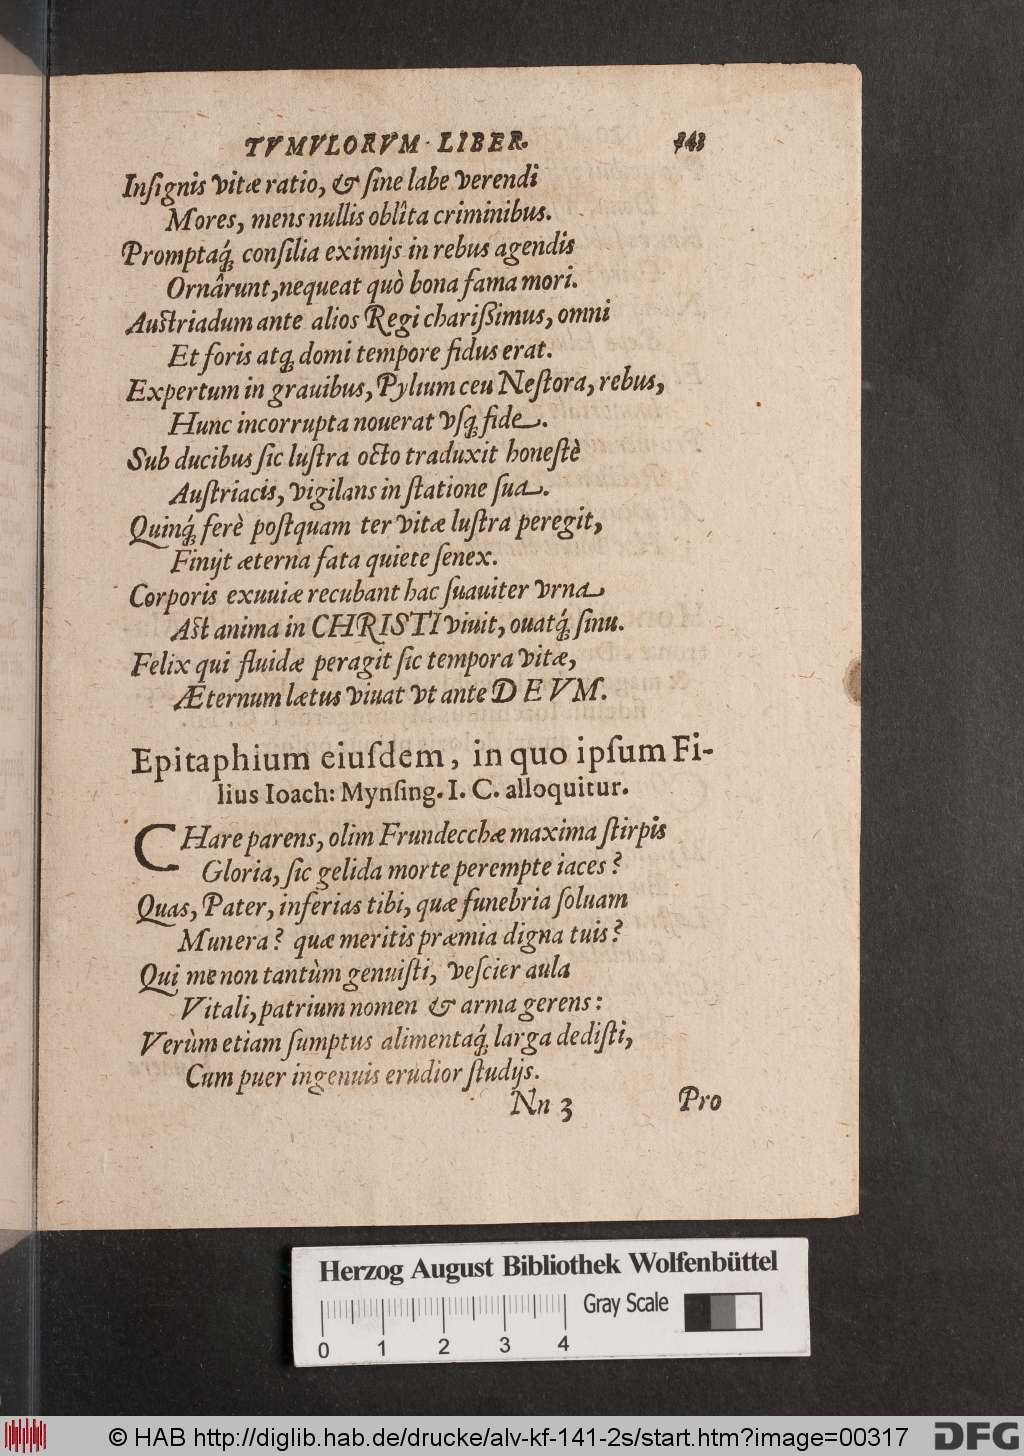 TVMVLORVM LIBER.
Inſignis vitæ ratio, & ſine labe verendi
Mores, mens nullis oblîta criminibus.
Promptaq́; conſilia eximijs in rebus agendis
Ornârunt, nequeat quò bona fama mori.
Auſtriadum ante alios Regi chariſſimus, omni
Et foris atq; domi tempore fidus erat.
Expertum in grauibus, Pylium ceu Neſtora, rebus,
Hunc incorrupta nouerat vſq; fide.
Sub ducibus ſic luſtra octo traduxit honeſtè
Auſtriacis, vigilans in ſtatione ſua.
Quinq́; ferè poſtquam ter vitæ luſtra peregit,
Finijt æterna fata quiete ſenex.
Corporis exuuiæ recubant hac ſuauiter vrna
Aſt anima in CHRISTI viuit, ouatq́; ſinu.
Felix qui fluidæ peragit ſic tempora vitæ,
Æternum lætus viuat vt ante DEVM.
Epitaphium eiuſdem, in quo ipſum Fi-
lius Ioach: Mynſing. I. C. alloquitur.
CHare parens, olim Frundecchæ maxima ſtirpis
Gloria, ſic gelida morte perempte iaces?
Quas, Pater, inferias tibi, quæ funebria ſoluam
Munera? quæ meritis præmia digna tuis?
Qui me non tantùm genuiſti, veſcier aula
Vitali, patrium nomen & arma gerens:
Verùm etiam ſumptus alimentaq́; larga dediſti,
Cum puer ingenuis erudior ſtudijs.
Nn 3 Pro
Herzog August Bibliothek Wolfenbüttel
Gray Scale
0 1 2 3 4
© HAB http://diglib.hab.de/drucke/alv-kf-141-2s/start.htm?image=00317
DFG